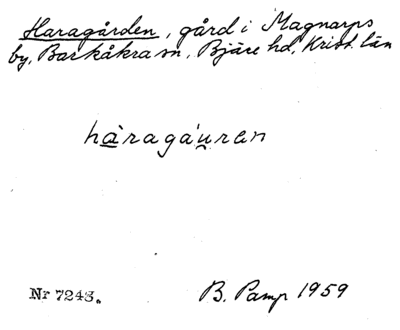 Haragården, gård i Magnarps
by, Barkåkra sn, Bjäre hd, Krist. län
hàragáu̯ran
Nr 7243.
B. Pamp 1959